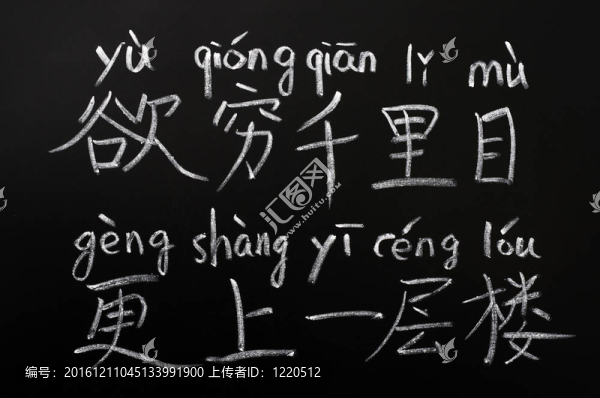 yù qióng qiān lǐ mù
欲穷千里目
gèng shàng yī céng lóu
更上一层楼
汇图网
www.huitu.com
编号：20161211045133991900 上传者ID：1220512